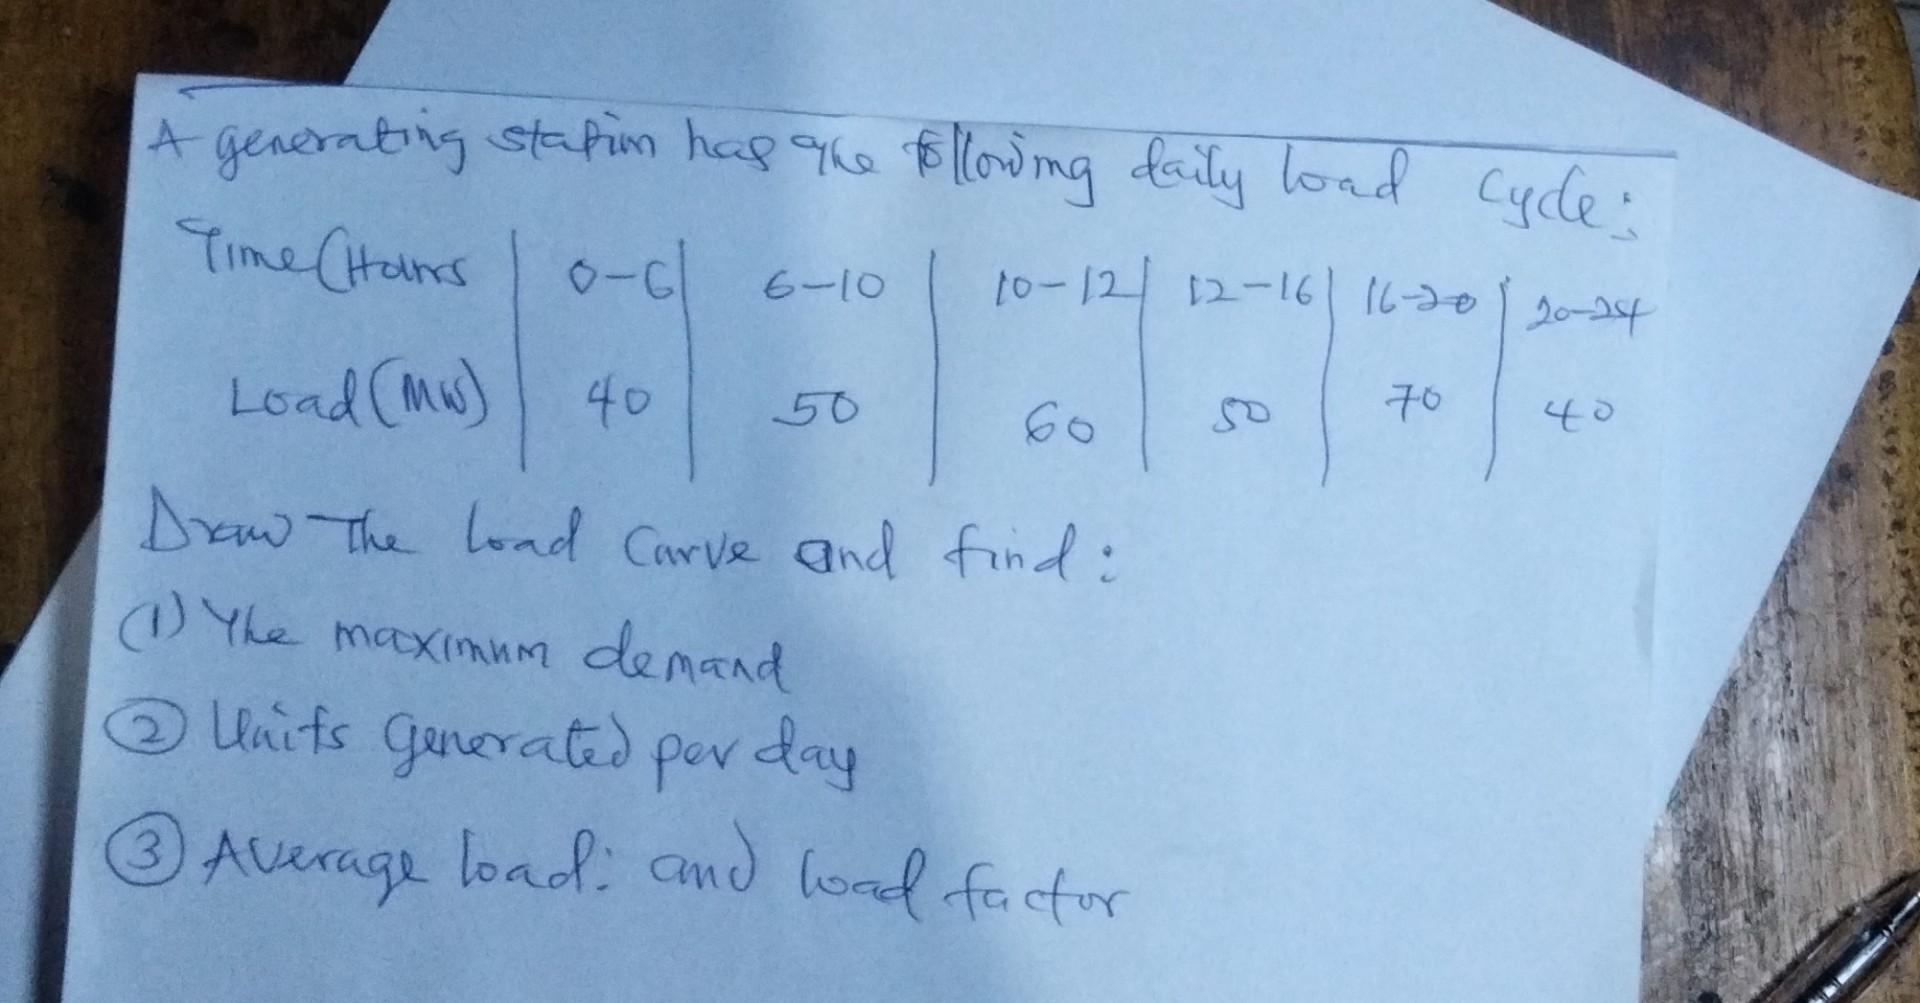 A generating station has the following daily load cycle:
Time (Hours | 0-6 | 6-10 | 10-12 | 12-16 | 16-20 | 20-24
Load (MW) | 40 | 50 | 60 | 50 | 70 | 40
Draw The load curve and find:
(1) The maximum demand
② Units generated per day
③ Average load: and load factor